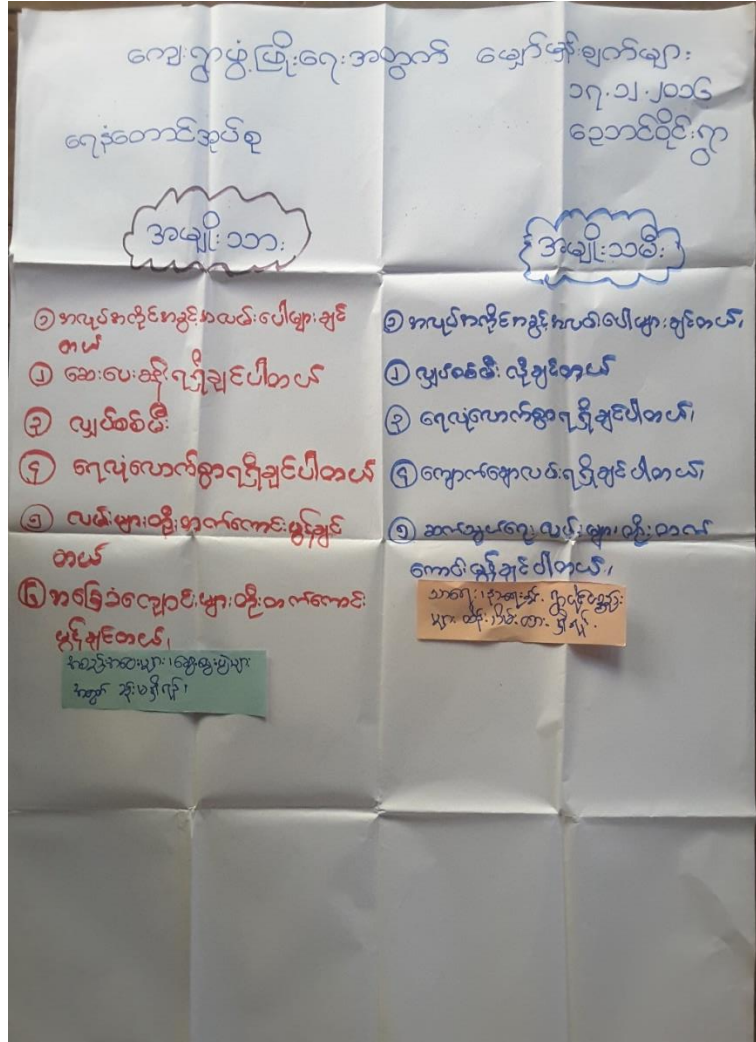 ကျေးရွာဖွံ့ဖြိုးရေးအတွက် မျှော်မှန်းချက်များ
၁၇.၁၂.၂၀၁၆
ရေနံတောင်အုပ်စု
ဥေဘင်ဝိုင်းရွာ
အမျိုးသား
၁ အလုပ်အကိုင်အခွင့်အလမ်းပေါများချင်
တယ်
၂ ဆေးပေးခန်းရရှိချင်ပါတယ်
၃ လျှပ်စစ်မီး
၄ ရေလုံလောက်စွာရရှိချင်ပါတယ်
၅ လမ်းများတိုးတက်ကောင်းမွန်ချင်
တယ်
၆ အခြေခံကျောင်းများတိုးတက်ကောင်း
မွန်ချင်တယ်၊
အစည်းအဝေးများ၊ ဆွေးနွေးပွဲများ
အတွက် ခန်းမရှိရန်၊
အမျိုးသမီး
၁ အလုပ်အကိုင်အခွင့်အလမ်းပေါများချင်တယ်၊
၂ လျှပ်စစ်မီး လိုချင်တယ်
၃ ရေလုံလောက်စွာရရှိချင်ပါတယ်၊
၄ ကျောက်ချောလမ်းရရှိချင်ပါတယ်၊
၅ ဆက်သွယ်ရေးလမ်းများတိုးတက်
ကောင်းမွန်ချင်ပါတယ်၊
သာရေး၊ နာရေး ရွာပိုင်ပစ္စည်း
များ ထိန်းသိမ်းထား ရှိရန်